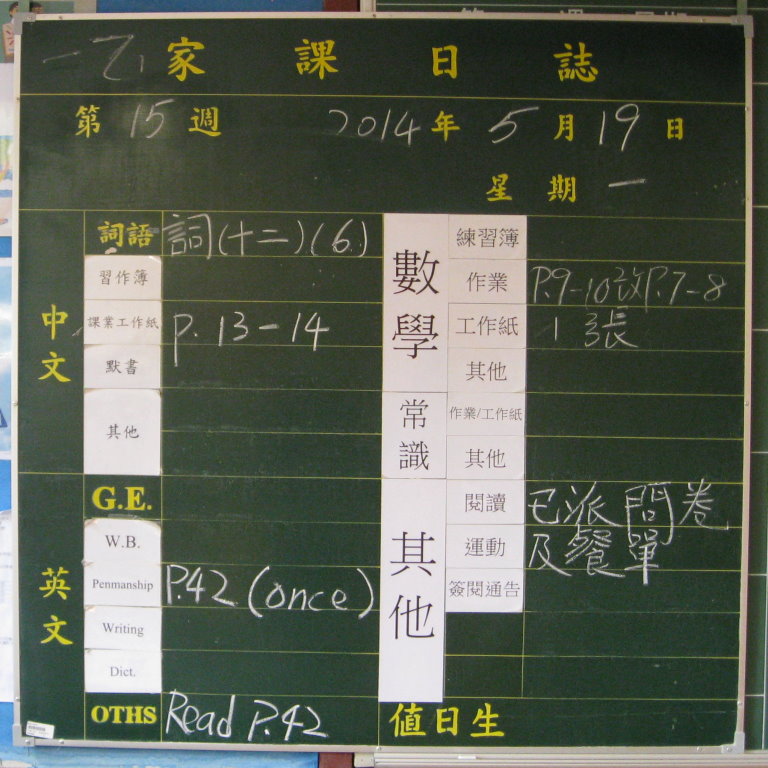 一乙家課日誌
第15週 2014年5月19日
星期一
中文
詞語 詞(十二)(6.)
習作簿
課業工作紙 p. 13-14
默書
其他
英文
G.E.
W.B.
Penmanship P.42 (once)
Writing
Dict.
OTHS Read P.42
數學
練習簿
作業 P.9-10改P.7-8
工作紙 1張
其他
常識
作業/工作紙
其他
其他
閱讀 已派問卷
運動 及餐單
簽閱通告
值日生